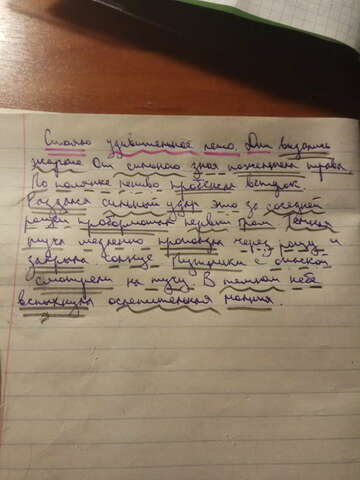 Стояло удивительное лето. Дни выдались
жаркие От сильного зноя пожелтела трава.
По полянке лениво пробежал ветерок
Раздался сильный удар это за соседней
рощей пробормотал первый гром Темная
туча медленно проползла через рощу и
закрыла солнце Путники с опаской
смотрели на тучу. В темном небе
вспыхнула ослепительная молния.